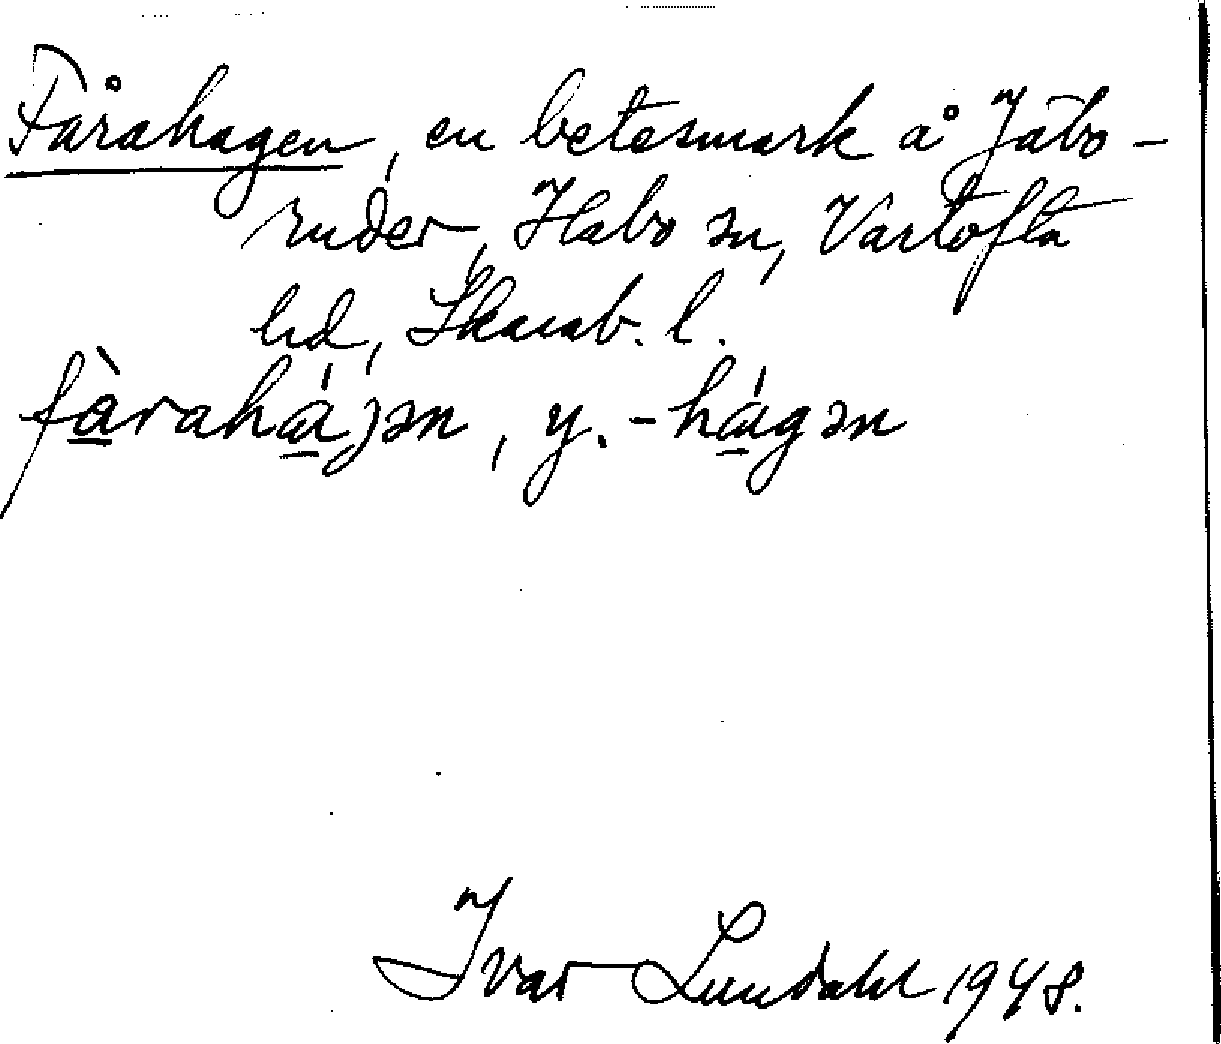 Fårahagen, en betesmark å Jäbo-
ruder, Habo sn, Vartofta
hd, Skarab. l.
fàrahájən, y. -hágən
Ivar Lundahl 1948.